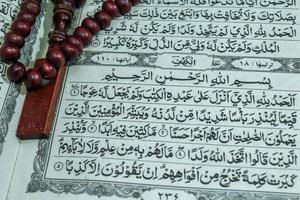 بِصَلَاتِكَ وَلَا تُخَافِتْ بِهَا وَابْتَغِ بَيْنَ ذَٰلِكَ سَبِيلًا ۝ وَقُلِ
الْحَمْدُ لِلَّهِ الَّذِي لَمْ يَتَّخِذْ وَلَدًا وَلَمْ يَكُنْ لَهُ شَرِيكٌ فِي
الْمُلْكِ وَلَمْ يَكُنْ لَهُ وَلِيٌّ مِنَ الذُّلِّ وَكَبِّرْهُ تَكْبِيرًا ۝
١٨ الكهف ١١٠
بِسْمِ اللَّهِ الرَّحْمَٰنِ الرَّحِيمِ
الْحَمْدُ لِلَّهِ الَّذِي أَنْزَلَ عَلَىٰ عَبْدِهِ الْكِتَابَ وَلَمْ يَجْعَلْ لَهُ عِوَجًا ۝
قَيِّمًا لِيُنْذِرَ بَأْسًا شَدِيدًا مِنْ لَدُنْهُ وَيُبَشِّرَ الْمُؤْمِنِينَ الَّذِينَ
يَعْمَلُونَ الصَّالِحَاتِ أَنَّ لَهُمْ أَجْرًا حَسَنًا ۝ مَاكِثِينَ فِيهِ أَبَدًا ۝ وَيُنْذِرَ
الَّذِينَ قَالُوا اتَّخَذَ اللَّهُ وَلَدًا ۝ مَا لَهُمْ بِهِ مِنْ عِلْمٍ وَلَا لِآبَائِهِمْ
كَبُرَتْ كَلِمَةً تَخْرُجُ مِنْ أَفْوَاهِهِمْ إِنْ يَقُولُونَ إِلَّا كَذِبًا ۝
٢٣٤